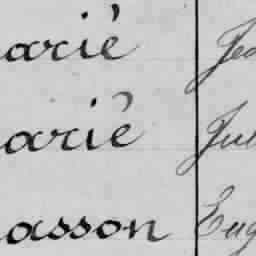 arié Jea
arié Jul
asson Eug